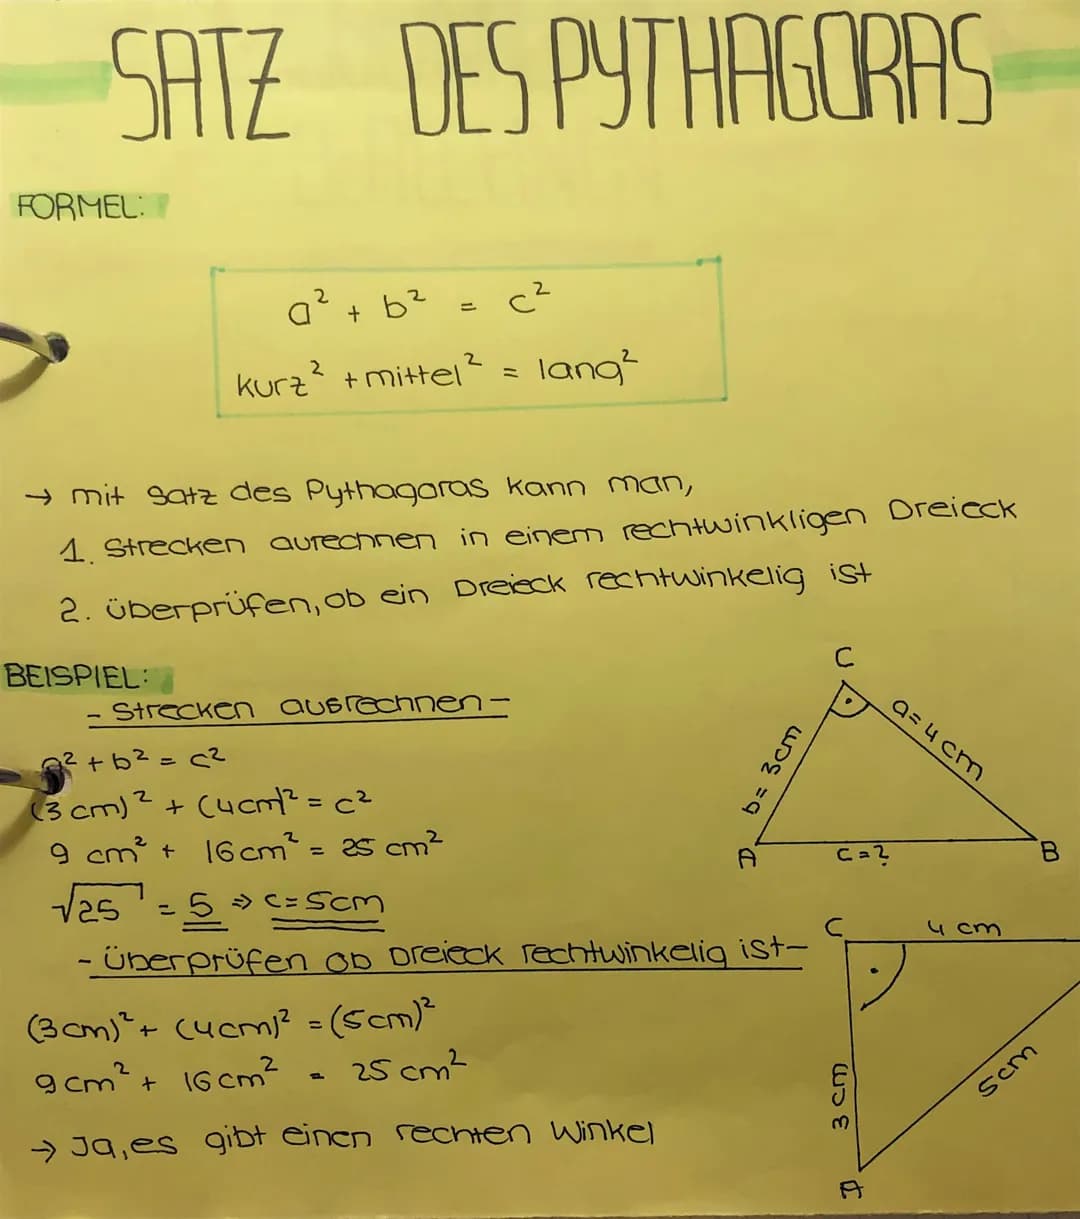 SATZ DES PYTHAGORAS
FORMEL:
a² + b² = c²
kurz² + mittel² = lang²
→ mit Satz des Pythagoras kann man,
1. Strecken aurechnen in einem rechtwinkligen Dreieck
2. überprüfen, ob ein Dreieck rechtwinkelig ist
BEISPIEL:
- Strecken ausrechnen -
a² + b² = c²
(3cm)² + (4cm)² = c²
9 cm² + 16cm² = 25 cm²
√25 = 5 ⇒ c = 5cm
C
b = 3cm
a = 4cm
A
c = ?
B
- Überprüfen ob Dreieck rechtwinkelig ist -
(3cm)² + (4cm)² = (5cm)²
9cm² + 16cm² = 25 cm²
→ Ja, es gibt einen rechten Winkel
C
4 cm
3 cm
5cm
A